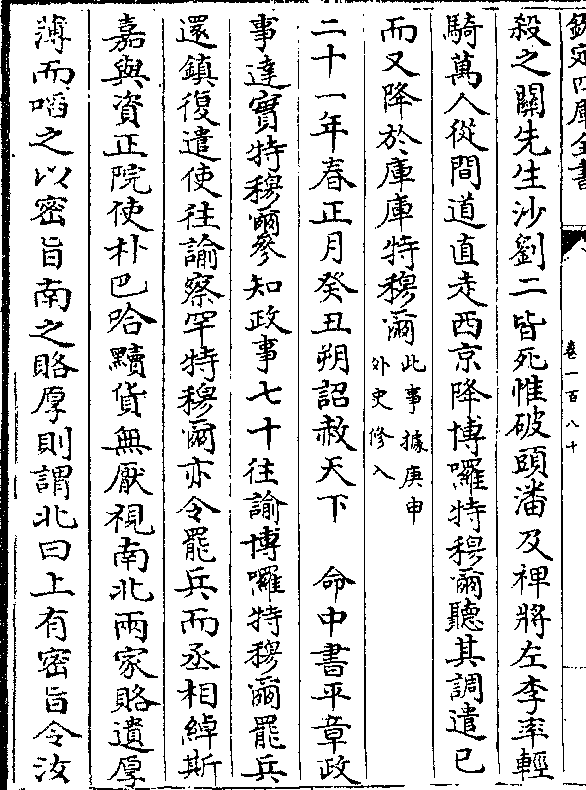 欽定四庫全書
卷一百八十
殺之關先生沙劉二皆死惟破頭潘及裨將左李率輕
騎萬人從間道直走西京降博囉特穆爾聽其調遣已
而又降於庫庫特穆爾此事據庚申
外史修入
二十一年春正月癸丑朔詔赦天下　命中書平章政
事達實特穆爾參知政事七十往諭博囉特穆爾罷兵
還鎮復遣使往諭察罕特穆爾亦令罷兵而丞相綽斯
嘉與資正院使朴巴哈黷貨無厭視南北兩家賂遺厚
薄而啗之以密旨南之賂厚則謂北曰上有密旨令汝